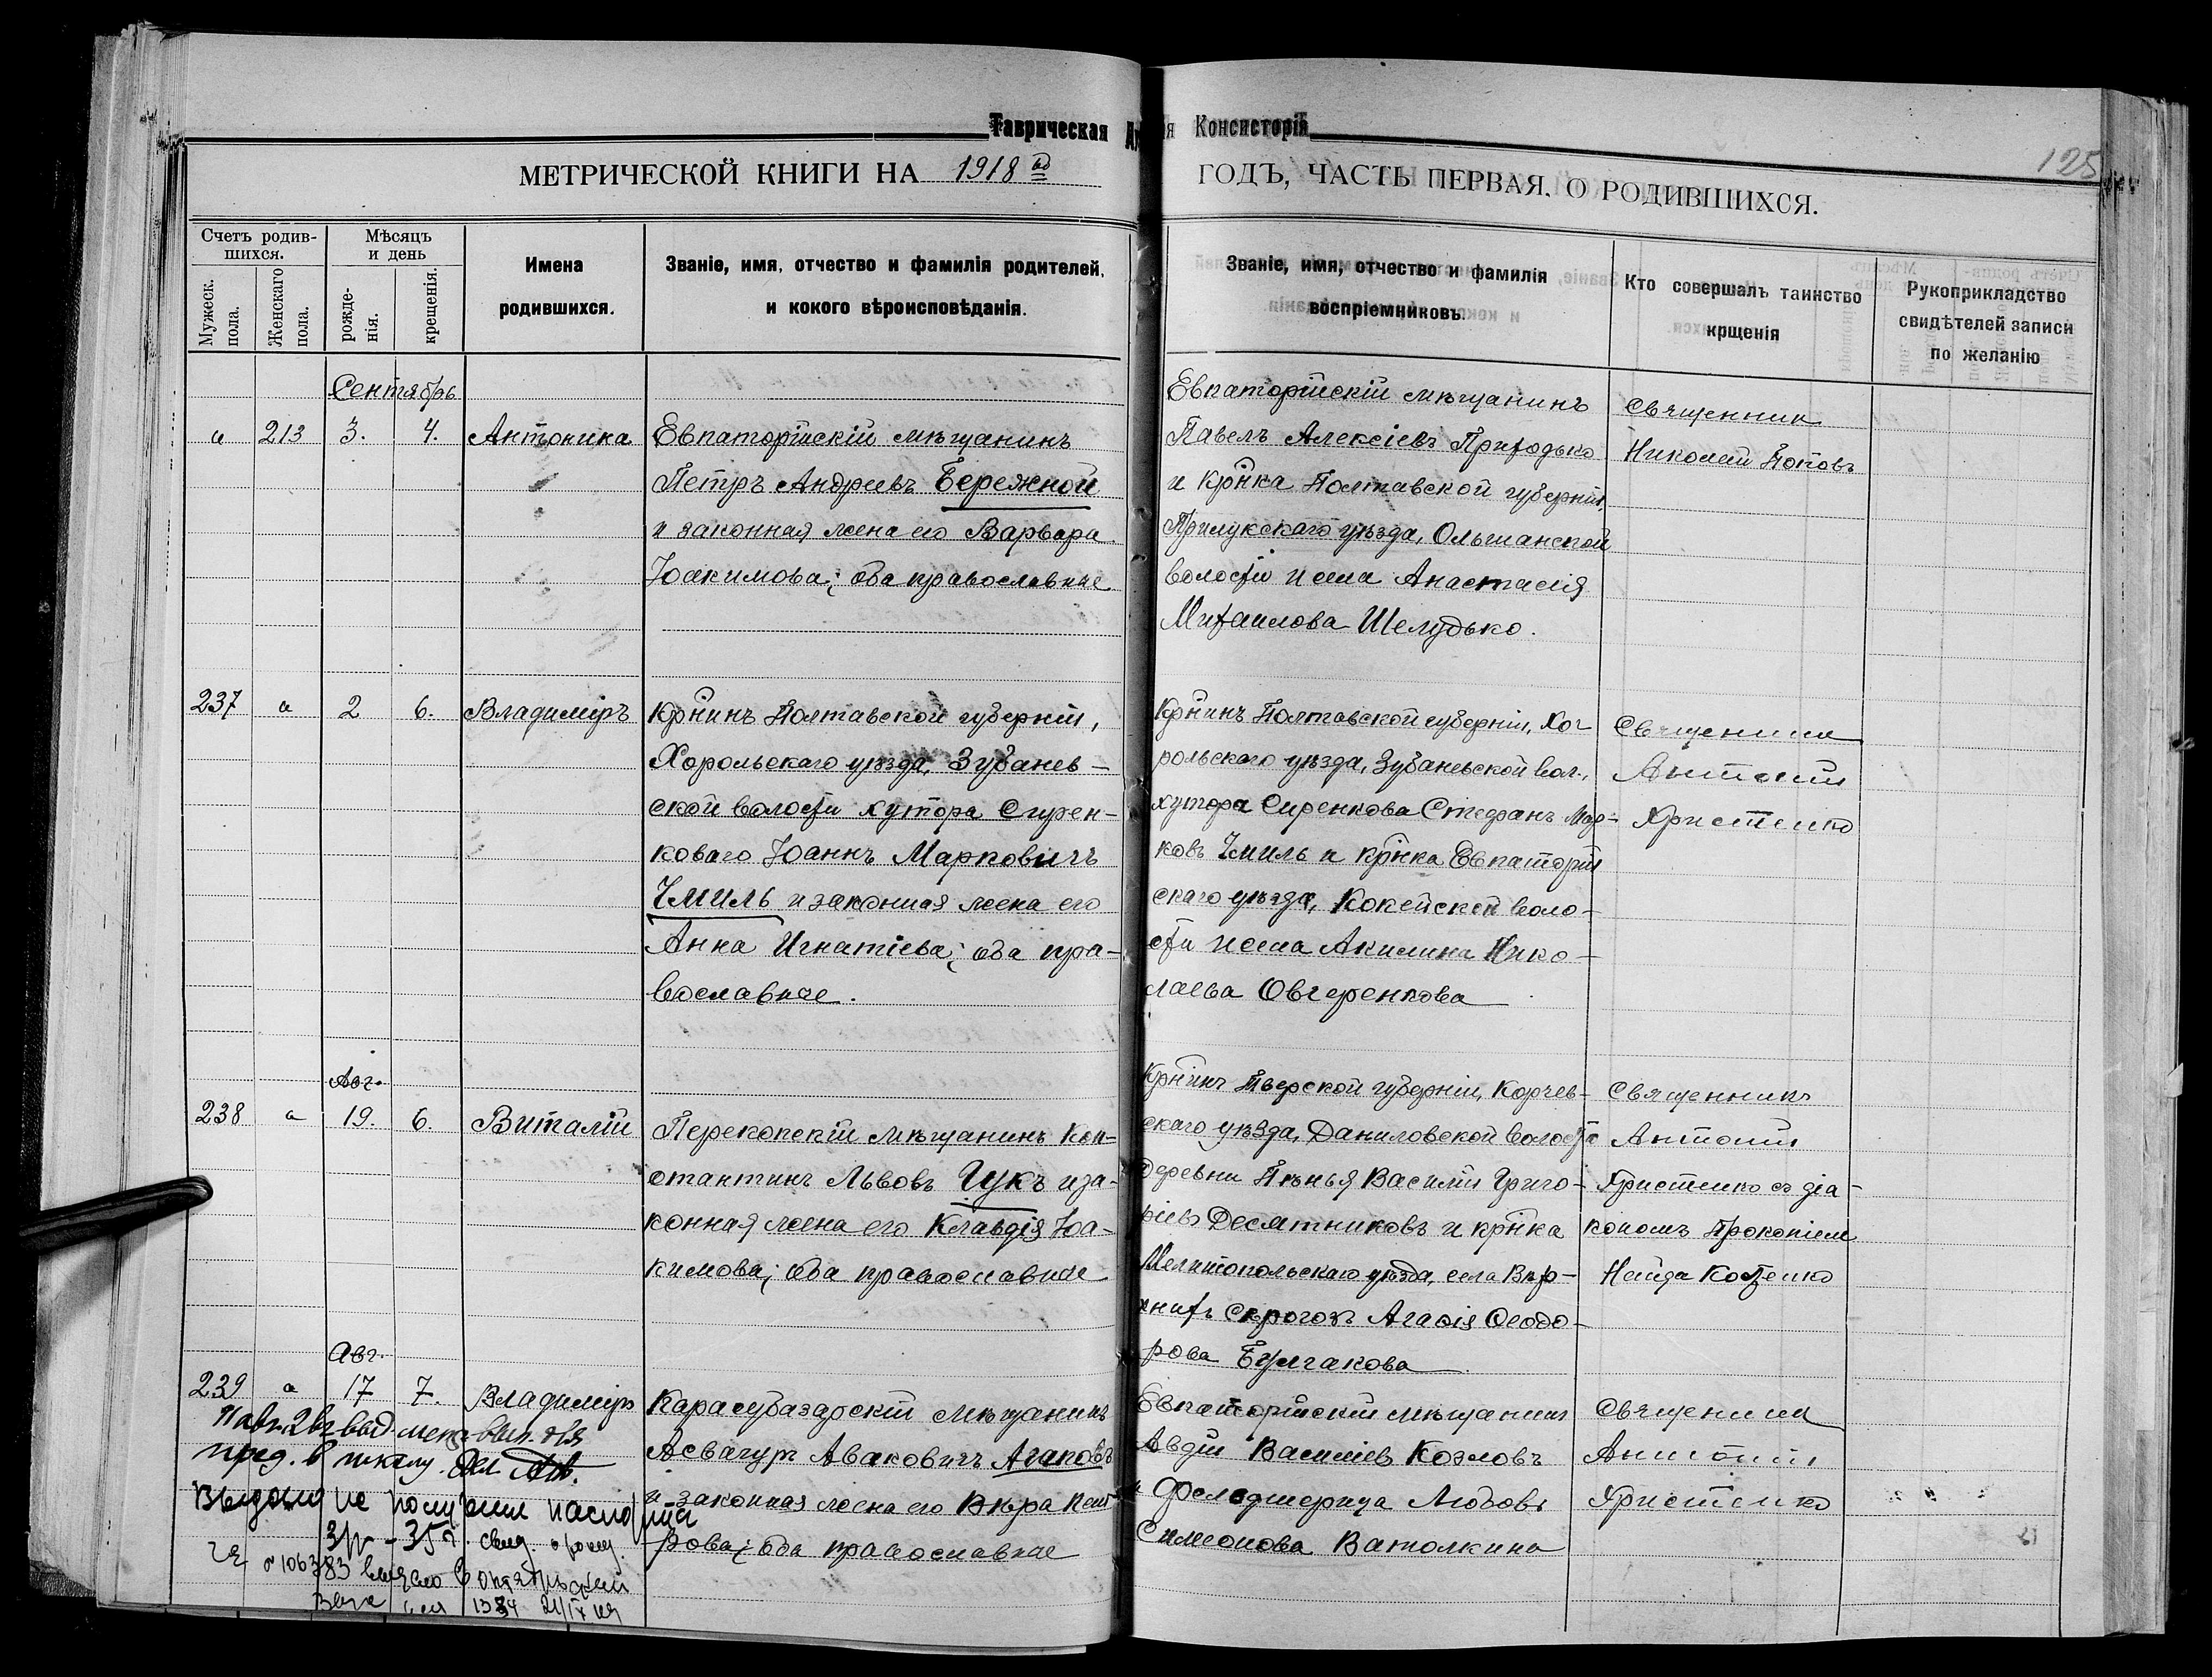 Таврическая
я Консисторія
125
МЕТРИЧЕСКОЙ КНИГИ НА 1918 й
ГОДЪ, ЧАСТЬ ПЕРВАЯ, О РОДИВШИХСЯ.
Счетъ родившихся.
Мужеск. пола.
Женскаго пола.
Мѣсяцъ и день
рожденія.
крещенія.
Имена
родившихся.
Званіе, имя, отчество и фамилія родителей,
и кокого вѣроисповѣданія.
Званіе, имя, отчество и фамилія
воспріемниковъ.
Кто совершалъ таинство
крщенія
Рукоприкладство
свидѣтелей записи
по желанію
Сентябрь
213 3. 4. Антонина
Евпаторійскій мѣщанинъ
Петръ Андреевъ Бережной
и законная жена его Варвара
Іоакимова; оба православные
Евпаторійскій мѣщанинъ
Павелъ Алексіевъ Приходько
и кр̃нка Полтавской губерніи,
Прилукскаго уѣзда, Ольшанской
волости и села Анастасія
Михаилова Шелудько.
Священник
Николай Поповъ
237 2 6. Владиміръ
кр̃нинъ Полтавской губерніи,
Хорольскаго уѣзда, Зубанев-
ской волости хутора Сирен-
коваго Іоаннъ Марковичъ
Чмиль и законная жена его
Анна Игнатіева; оба пра-
вославные.
кр̃нинъ Полтавской губерніи, Хо-
рольскаго уѣзда, Зубаневской вол.,
хутора Сиренкова Стефанъ Мар-
ковъ Чмиль и кр̃нка Евпаторій
скаго уѣзда, Кокейской воло-
сти и села Акилина Нико-
лаева Овчеренкова
Священник
Антоній
Христенко
Авг.
238 19. 6. Виталій
Перекопскій мѣщанинъ Кон-
стантинъ Львовъ Цукъ и за-
конная жена его Клавдія Іоа-
кимова; оба православные
Кр̃нинъ Тверской губерніи, Корчев-
скаго уѣзда, Даниловской волости
деревни Пѣнья Василій Григо-
ріевъ Десятниковъ и кр̃нка
Мелитопольскаго уѣзда, села Вер-
хнихъ Сѣрогозъ Агафія Ѳеодо-
рова Булгакова
Священникъ
Антоній
Христенко съ діа-
кономъ Прокопіем
Найда Костенко
Авг.
239 17 7. Владиміръ
Карасубазарскій мѣщанинъ
Асвачур Авакович Агаповъ
и законная жена его Вѣра Пет
рова; оба православные
Евпаторійскій мѣщанинъ
Авдій Василіев Козловъ
и фельдшерица Любовь
Симеонова Ватолкина
Священник
Антоній
Христенко
пред. в школу.
3р - 35к.
106383